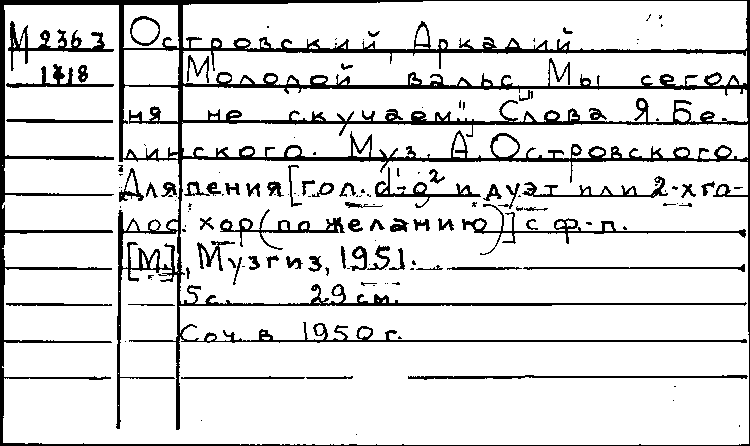 М 2363 Островский, Аркадий
1418 Молодой вальс. Мы сегод
ня не скучаем". Слова Я. Бе-
линского. Муз. А. Островского.
Для пения [гол. d¹-g² и дуэт или 2-хго-
лос. хор (по желанию)] с ф.-п.
[М.], Музгиз, 1951.
5 с. 29 см.
Соч. в 1950 г.